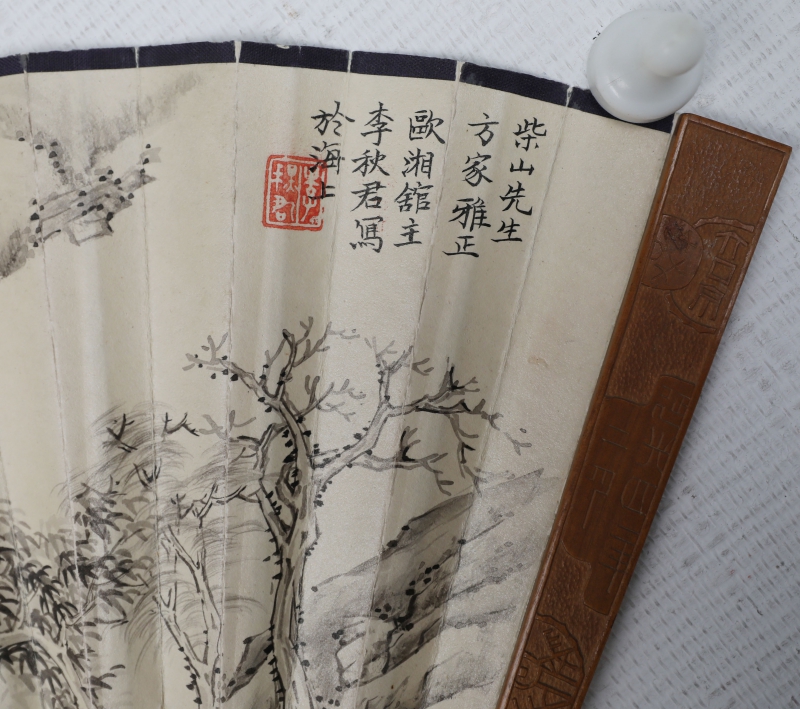 柴山先生
方家雅正
歐湘舘主
李秋君寫
於海上